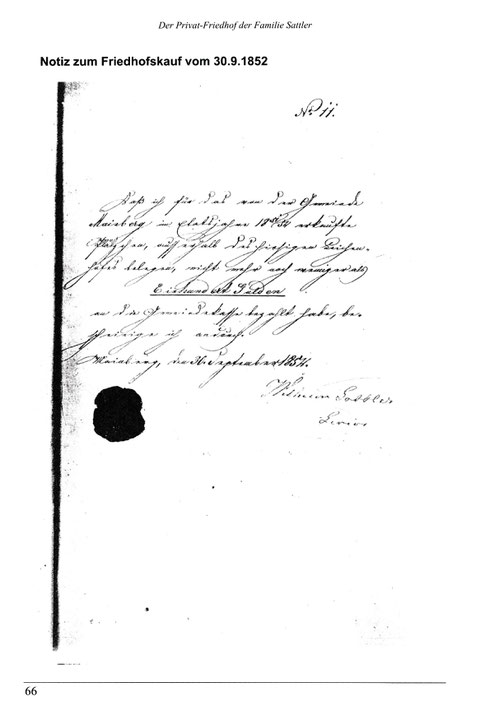 Der Privat-Friedhof der Familie Sattler
Notiz zum Friedhofskauf vom 30.9.1852
No. 11.
Daß ich für das von der Gemeinde
Mainberg im Etatsjahre erkaufte
Plätzchen, außerhalb des hiesigen Leichen-
hofes belegen, nicht mehr noch weniger als
Einhundert Gulden
an die Gemeindekasse bezahlt habe, be-
scheinige ich andurch.
Mainberg, den 30. September 1852.
Wilhelm Sattler
66